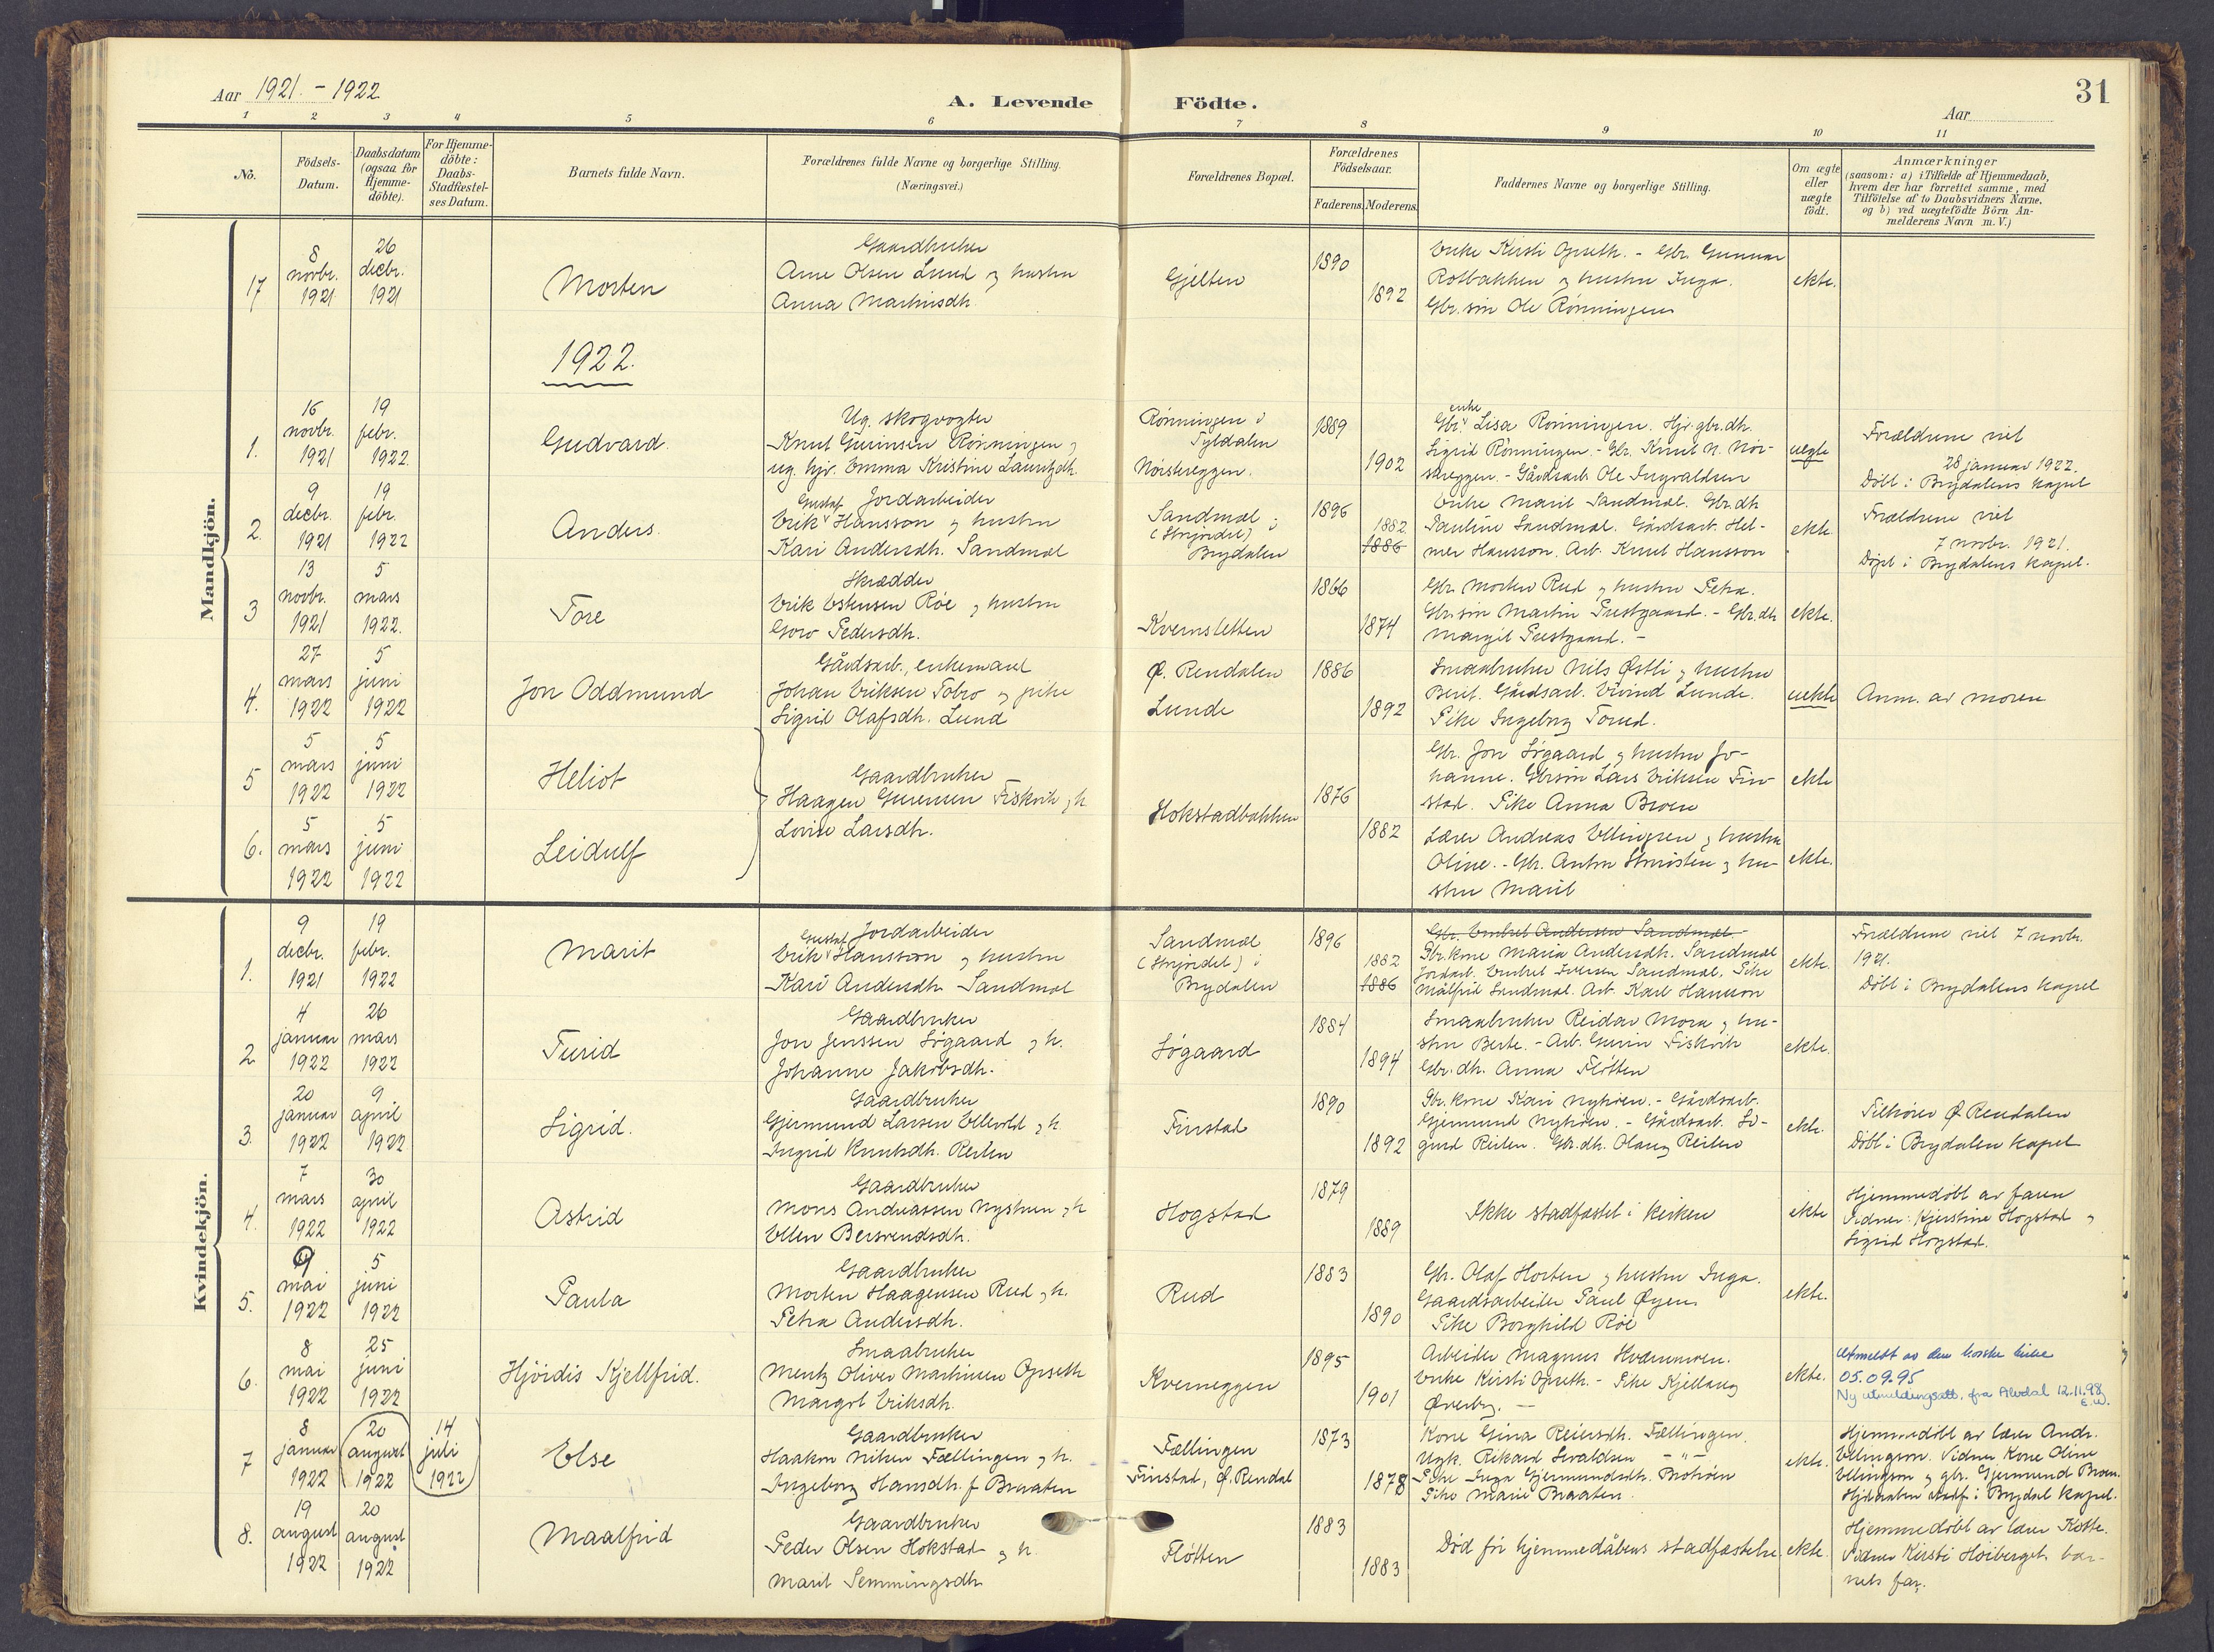 Aar 1921 - 1922
A. Levende Födte.
31
Aar
1 2 3 4 5 6 7 8 9 10 11
No.
Födsels-
Datum.
Daabsdatum
(ogsaa for
Hjemme-
döbte).
For Hjemme-
döbte:
Daabs-
Stadfæstel-
ses Datum.
Barnets fulde Navn.
Forældrenes fulde Navne og borgerlige Stilling.
(Næringsvei.)
Forældrenes Bopæl.
Forældrenes
Födselsaar.
Faderens. Moderens.
Faddernes Navne og borgerlige Stilling.
Om ægte
eller
uægte
födt.
Anmærkninger
(saasom: a) i Tilfælde af Hjemmedaab,
hvem der har forrettet samme, med
Tilföielse af to Daabsvidners Navne,
og b) ved uægtefödte Börn An-
melderens Navn m. V.)
Mandkjön.
17
8
novbr.
1921
26
decbr.
1921
Morten
Gaardbruker
Arne Olsen Lund og hustru
Anna Martinsdh.
Gjelten
1890
1892
Enke Kirsti Opseth. - Gbr. Gunnar
Rotbakken og hustru Inga.
Gbr. søn Ole Rønningen
ekte.
1922.
1.
16
novbr.
1921
19
febr.
1922.
Gudvard.
Ug. skogvogter
Knut Rønningen og
ug. hjr. Emma Kristine Lauritzdh.
Rønningen i
Tyldalen
1889
1902
enke
Gbr. Lisa Rønningen. Hjr. gbr. dh.
Sigrid Rønningen. - Gbr. Knut N. Nor-
streggen. - Gårdsarb. Ole Ingvaldsen
uegte
Forældrene viet
28 januar 1922.
Døbt i Brydalens kapel
2.
9
decbr.
1921
19
febr.
1922
Anders.
Gustaf Jordarbeider
Erik Hansson og hustru
Kari Andersdh. Sandmæl
Sandmæl i
Brydalen
1896
1882.
1886
Enke Marit Sandmæl. Gbr. dh
Pauline Sandmæl. Gårdsarb. Hel-
mer Hansson. Arb. Knut Hansson
ekte.
Forældrene viet
7 novbr. 1921.
Døpt i Brydalens kapel.
3
13
novbr.
1921
5
mars
1922.
Tore
Skrædder
Erik Estensen Røe og hustru
Goro Pedersdh.
Kvernsletten
1866
1874
Gbr. Morten Rud og hustru Petra.
Gbr. søn Martin Prestgaard. - Gbr. dh.
Margit Prestgaard. -
ekte.
4.
27
mars
1922
5
juni
1922
Jon Oddmund
Gårdsarb., enkemand
Johan Eriksen Tobro og pike
Sigrid Olafsdh. Lund
Ø. Rendalen
Lunde
1886
1892
Smaabruker Nils Østli og hustru
Berit. Gårdsarb. Eivind Lunde.
Pike Ingeborg
uekte
Anm. av moren
5
5
mars
1922
5
juni
1922
Heliot
Gaardbruker
Haagen Fiskvik og h.
Lovise Larsdh.
Hokstadbakken
1876
1882
Gbr. Jon Søgaard og hustru Jo-
hanne. Gbr.søn Lars Eriksen Fin-
stad. Pike Anna Broen
ekte
6.
5
mars
1922
5
juni
1922
Leidulf
Lærer Andreas Ellingsen og hustru
Oline. - Gbr. Anton og hu-
stru Marit
ekte.
Kvindekjön.
1.
9
decbr.
1921
19
febr.
1922
Marit
Gustaf Jordarbeider
Erik Hansson og hustru
Kari Andersdh Sandmæl
Sandmæl
Brydalen
1896
1882
1886
Gbr. Embret Andersen Sandmæl
Gbr. kone Maria Andersdh. Sandmæl
Jordarb. Embret Iversen Sandmæl. Pike
Målfrid Sandmæl. Arb. Karl Hansson
ekte.
Forældrene viet 7 novbr.
1921.
Døbt i Brydalens kapel
2
4
januar
1922
26
mars
1922
Turid
Gaardbruker
Jon Jenssen Søgaard og h.
Johanne Jakobsdh.
Søgaard
1884
1894
Smaabruker Reidar Mora og hu-
stru Berte. - Arb. Fiskvik
Gbr. dh. Anna Fløtten
ekte.
3.
20
januar
1922
9
april
1922
Sigrid.
Gaardbruker
Gjermund Larsen Ellevold og h.
Ingrid Knutsdh. Reiten
Finstad
1890
1892
Gbr. kone Kari Nyhoen. - Gårdsarb.
Gjermund Nyhoen. - Gårdsarb. Si-
gurd Reiten. Gbr. dh. Olaug Reiten
ekte.
Tilhører Ø. Rendalen
Døbt i Brydalen kapel
4.
7
mars
1922
30
april
1922
Astrid
Gaardbruker
Mons Andreassen Nystuen og h
Ellen Bersvendsdh.
Hogstad
1879
1889
Ikke stadfæstet i kirken
ekte
Hjemmedøbt av faren
Vidner: Kjerstine Hogstad og
Sigrid Hogstad.
5.
9
mai
1922
5
juni
1922
Paula
Gaardbruker
Morten Haagensen Rud og h.
Petra Andersdh.
Rud
1883
1890
Gbr. Olaf Horten og hustru Inga.
Gaardsarbeider Paul Øyen
Pike Borghild Röe
ekte.
6.
8
mai
1922
25
juni
1922
Hjördis Kjellfrid.
Smaabruker
Mentz Oliver Martinsen Opseth
Margot Eriksdh.
Kverneggen
1895
1901
Arbeider Magnus
Enke Kirsti Opseth. - Pike Kjellaug
Øverby. -
ekte.
Utmeldt av den norske kirke
05.09.95
Ny utmeldingsatt. fra Alvdal 12.11.98
E.W.
7
8
januar
1922
20
august
1922
14
juli
1922
Else
Gaardbruker
Haakon Nilsen Fællingen og h.
Ingeborg Hansdh. f Braaten
Fællingen
Finstad, Ø. Rendal
1873
1878
Kone Gina Reiersdh. Fællingen.
Ungk. Rikard Svaldsen - " -
Pike Inga Gjermundsdh.
Pike Marie Braaten.
ekte.
Hjemmedøbt av lærer Andr.
Ellingson. Vidner Kone Oline
Ellingson og gbr. Gjermund Broen.
Hjdaaben stadf. i Brydal kapel.
8.
19
august
1922
20
august
1922
Maalfrid
Gaardbruker
Peder Olsen Hokstad og h.
Marit Semmingsdh
Fløtten
1883
1883
Død før hjemmedåbens stadfæstelse.
ekte.
Hjemmedøbt av lærer
Vidner Kirsti Høiberget bar-
nets far.